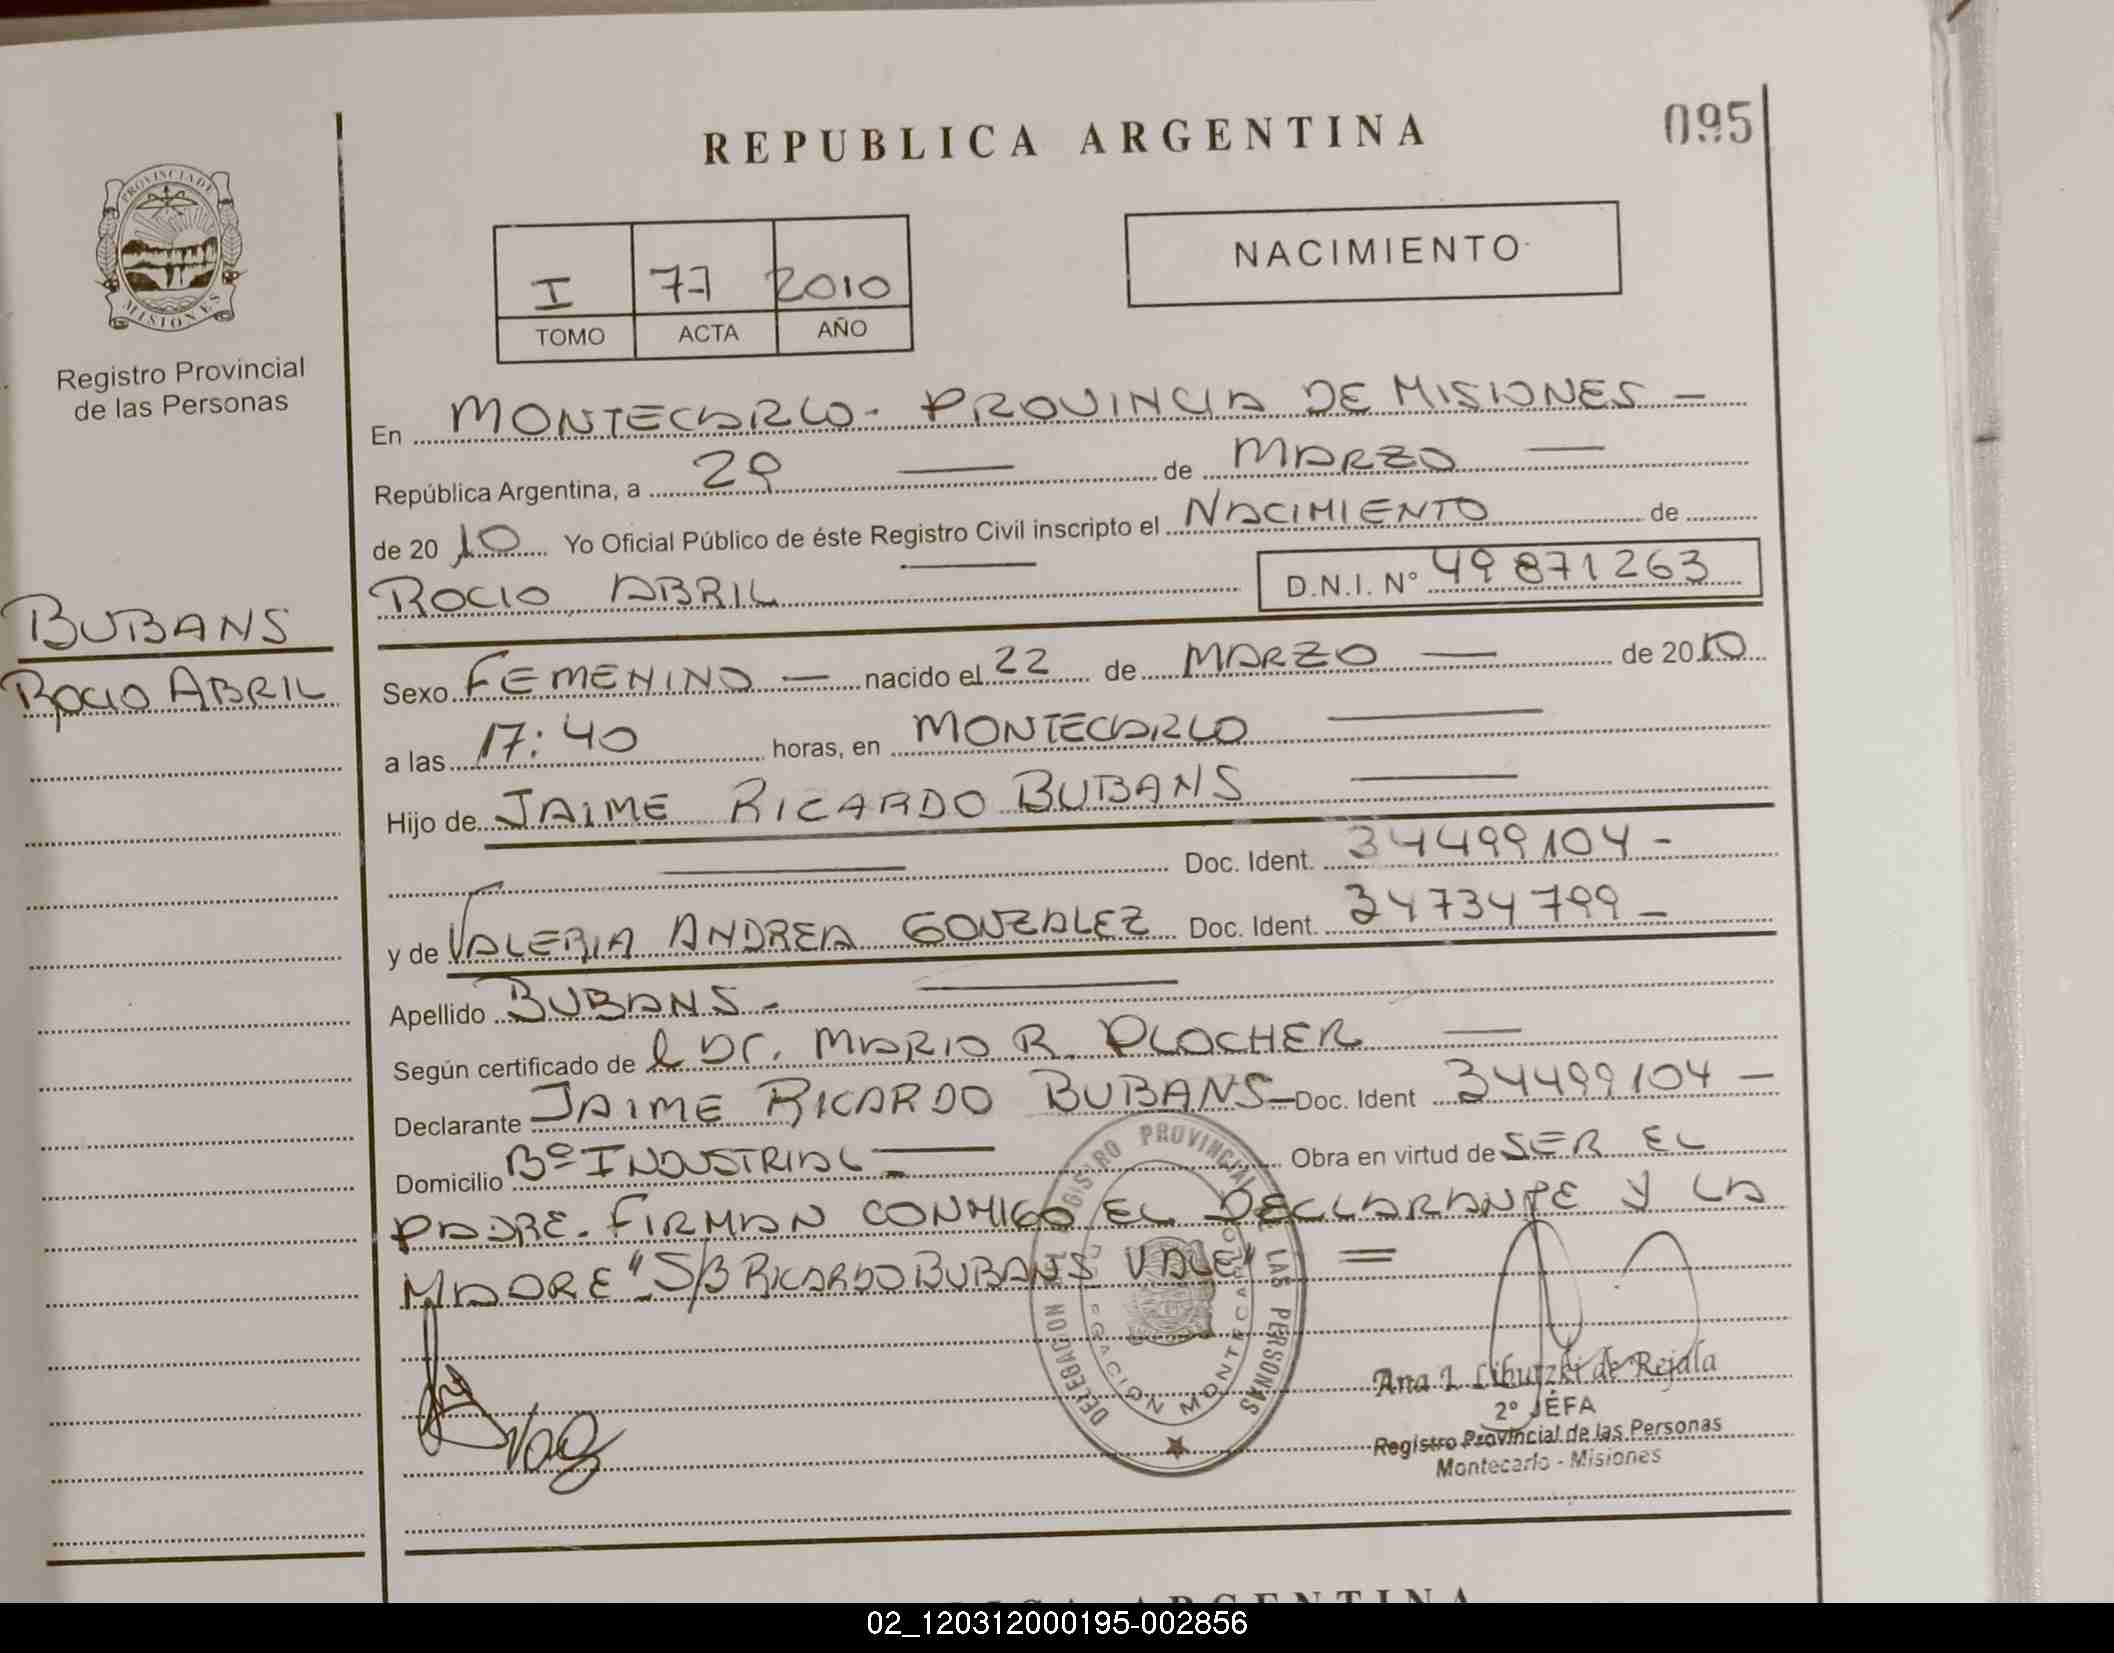 REPUBLICA ARGENTINA
095
PROVINCIA DE
MISIONES
Registro Provincial
de las Personas
I 77 2010
TOMO ACTA AÑO
NACIMIENTO
En MONTECARLO - PROVINCIA DE MISIONES -
República Argentina, a 29 — de MARZO —
de 2010 Yo Oficial Público de éste Registro Civil inscripto el NACIMIENTO de
ROCIO ABRIL — D.N.I. N° 49871263
BUBANS
ROCIO ABRIL
Sexo FEMENINO — nacido el 22 de MARZO — de 2010
a las 17:40 horas, en MONTECARLO —
Hijo de JAIME RICARDO BUBANS —
— Doc. Ident. 34499104 -
y de VALERIA ANDREA GONZALEZ Doc. Ident. 34734799 -
Apellido BUBANS - —
Según certificado de l DR. MARIO R. PLOCHER —
Declarante JAIME RICARDO BUBANS - Doc. Ident 34499104 -
Domicilio Bº INDUSTRIAL - — Obra en virtud de SER EL
PADRE. FIRMAN CONMIGO EL DECLARANTE Y LA
MADRE "S/B RICARDO BUBANS VALE" =
DELEGACION DEL REGISTRO PROVINCIAL DE LAS PERSONAS
DELEGACION MONTECARLO
Ana I. Liburzki de Rejala
2° JEFA
Registro Provincial de las Personas
Montecarlo - Misiones
02_120312000195-002856